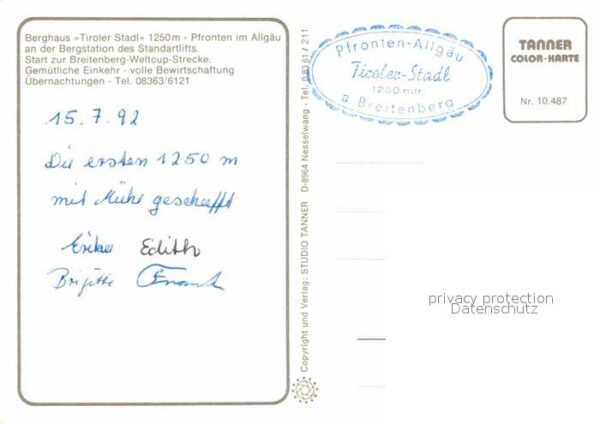 Berghaus »Tiroler Stadl« 1250 m - Pfronten im Allgäu
an der Bergstation des Standartlifts.
Start zur Breitenberg-Weltcup-Strecke.
Gemütliche Einkehr - volle Bewirtschaftung
Übernachtungen - Tel. 08363/6121
15.7.92
Die ersten 1250 m
mit Mühe gescheefft
Edith
Brigitte Frank
Copyright und Verlag: STUDIO TANNER D-8964 Nesselwang - Tel. 08361/211
Pfronten-Allgäu
Tiroler-Stadl
1250 mtr.
a. Breitenberg
TANNER
COLOR-KARTE
Nr. 10.487
privacy protection
Datenschutz